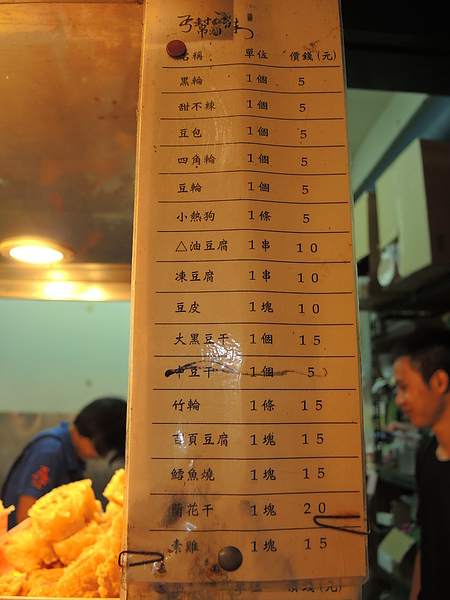 丐幫滷味
名稱 單位 價錢(元)
黑輪 1個 5
甜不辣 1個 5
豆包 1個 5
四角輪 1個 5
豆輪 1個 5
小熱狗 1條 5
△油豆腐 1串 10
凍豆腐 1串 10
豆皮 1塊 10
大黑豆干 1個 15
中豆干 1個 5
竹輪 1條 15
百頁豆腐 1塊 15
鱈魚燒 1塊 15
蘭花干 1塊 20
素雞 1塊 15
單位 價錢(元)